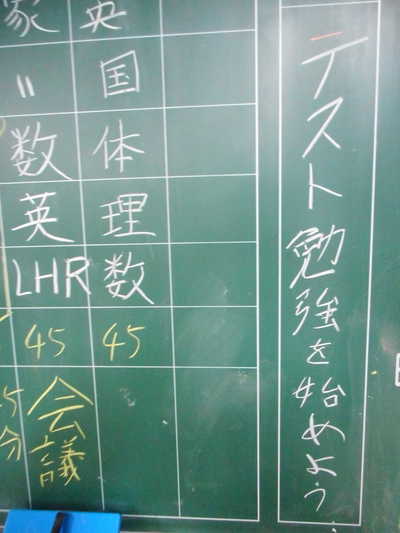 テスト勉強を始めよう
英
国
体
理
数
45
家
〃
数
英
LHR
45
会議
5分